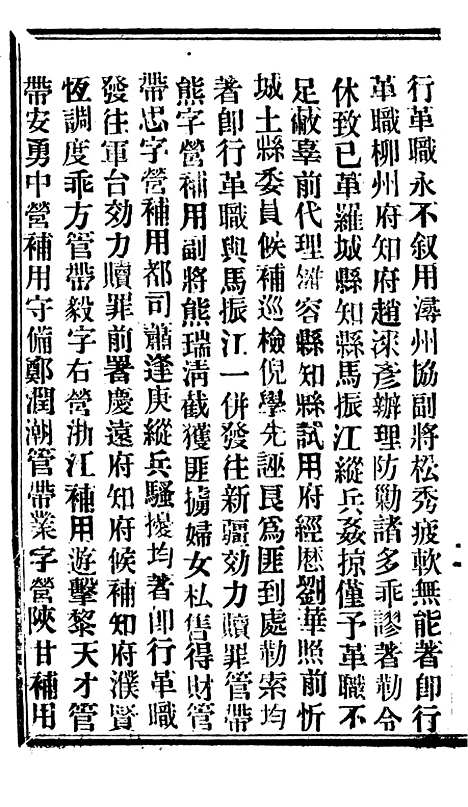 行革職永不叙用潯州協副將松秀疲軟無能著卽行
革職柳州府知府趙㴱彥辦理防勦諸多乖謬著勒令
休致已革羅城縣知縣馬振江縱兵姦掠僅予革職不
足蔽辜前代理雒容縣知縣試用府經歷劉華照前忻
城土縣委員候補巡檢倪學先誣良爲匪到處勒索均
著卽行革職與馬振江一併發往新疆効力贖罪管帶
熊字營補用副將熊瑞淸截獲匪擄婦女私售得財管
帶忠字營補用都司蕭逢庚縱兵騷擾均著卽行革職
發往軍台効力贖罪前署慶遠府知府候補知府濮賢
恆調度乖方管帶毅字右營浙江補用遊擊黎天才管
帶安勇中營補用守備鄭潤潮管帶業字營陝甘補用